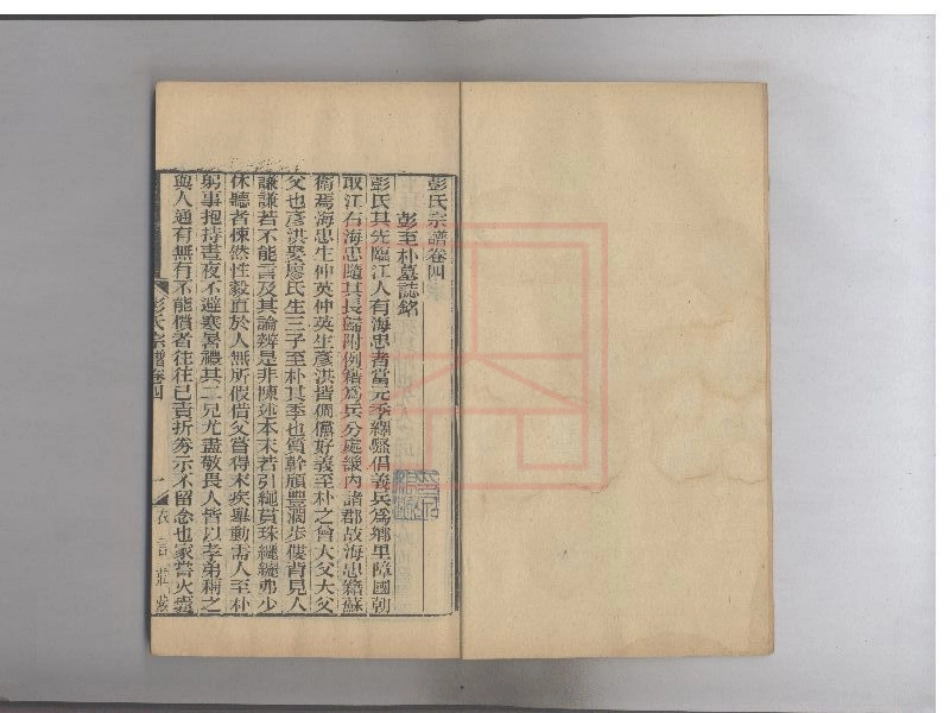 彭氏宗譜卷四
彭至朴墓誌銘
彭氏其先臨江人有海忠者當元季繹騷倡義兵爲鄉里障國朝
取江右海忠隨其長歸附例籍爲兵分處畿内諸郡故海忠籍蘇
衛焉海忠生仲英仲英生彥洪皆倜儻好義至朴之曾大父大父
父也彥洪娶廖氏生三子至朴其季也質幹頎豐濶步僂背見人
謙謙若不能言及其論辨是非陳述本末若引繩貫珠纚纚弗少
休聽者悚然性毅直於人無所假借父嘗得末疾舉動需人至朴
躬事抱持晝夜不避寒暑禮其二兄尤盡敬畏人皆以孝弟稱之
與人通有無有不能償者往往已責折劵示不留念也家嘗火
彭氏宗譜卷四
一
衣言莊